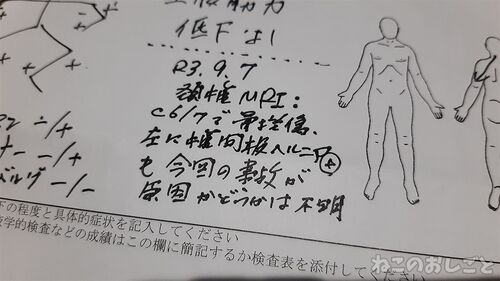 上肢筋力
低下なし
R3.9.7
頚椎MRI:
C6/7で骨挫傷.
左に椎間板ヘルニア⊕
も今回の事故が
原因かどうかは不明
+ +
+ +
-/+
-/+
-/-
下の程度と具体的症状を記入してください
学的検査などの成績はこの欄に簡記するか検査表を添付してください
ねこのおしごと